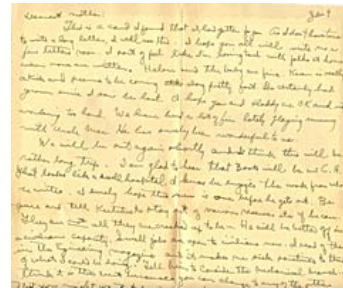 Dearest mother: Jan 9
This is a card I found that I had gotten for you. As I don't have time
to write a long letter, I will use this. I hope you all will write me a
few letters soon. I sort of feel like I'm losing touch with folks at home
when none are written. Helen and the baby are fine. Karen is really
cute and seems to be coming along pretty fast. She certainly had
grown since I saw her last. I hope you and Daddy are OK and not
working too hard. We have had a lot of fun lately playing
with Uncle Max. He has surely been wonderful to us.
We will be out again shortly and I think this will be
rather long trip. I am glad to hear that Boots will be in C. A.
That looks like a swell hospital. I know he enjoys the work from what
he writes. I surely hope this war is over before he gets out. Be
sure and tell to stay out of various reserves etc if he can.
They are not all they are cracked up to be. He will be better off in
a civilian capacity. Swell jobs are open to civilians now. I read of them
in the Engineering magazine and it makes me sick sometimes to think
of what I could be doing. Tell him to consider the Mechanical branch
think it is the best because you can change to any of the others